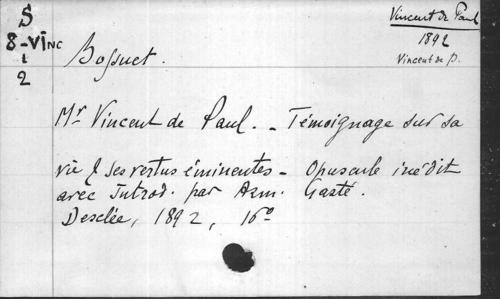 S
8-Vinc
1
2
Vincent de Paul
1892
Vincent de P.
Bossuet.
Mr Vincent de Paul. - Témoignage sur sa
vie & ses vertus éminentes - Opuscule inédit
avec Introd. par Arm. Gasté.
Desclée, 1892, 16°